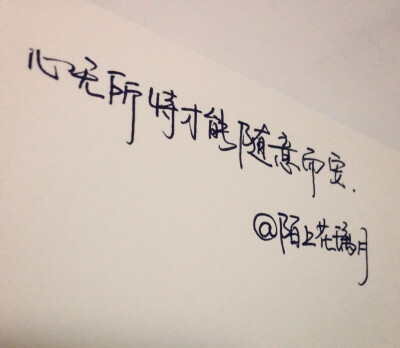 心无所恃才能随意而安.
@陌上花璃月